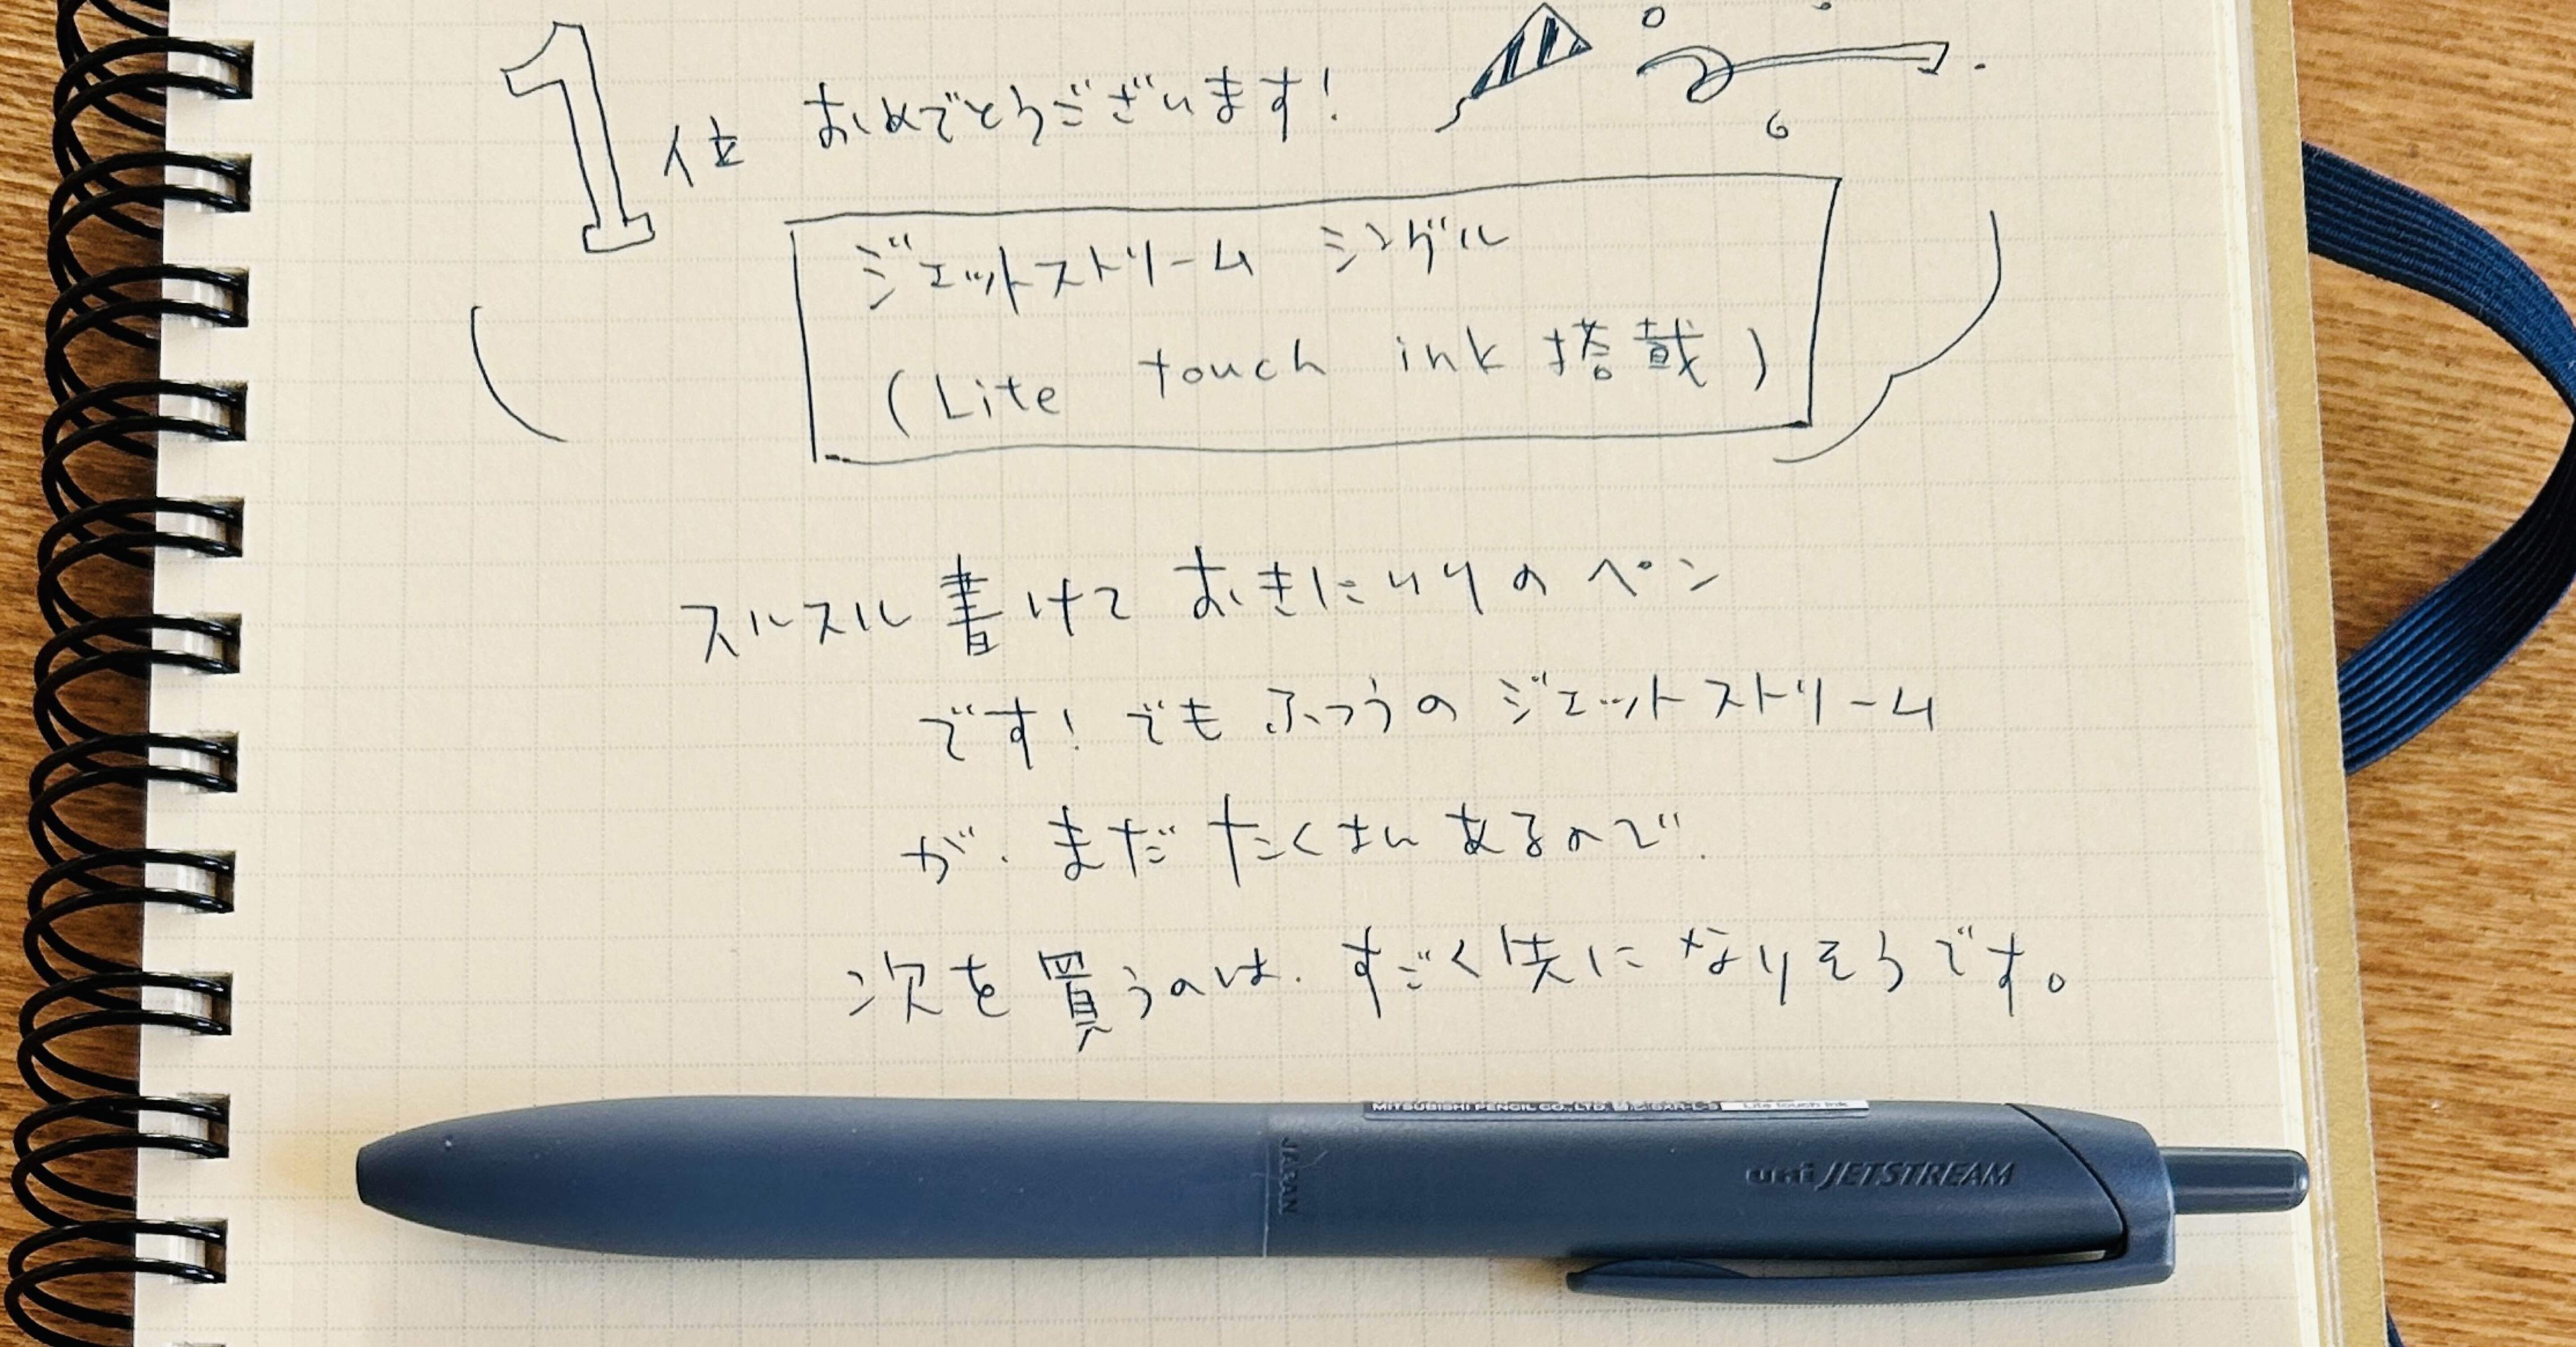 1位 おめでとうございます!
ジェットストリーム シングル
(Lite touch ink 搭載)
スルスル書けて おきにいりの ペン
です! でも ふつうの ジェットストリーム
が、まだ たくさん あるので、
次を買うのは、すごく先に なりそうです。
MITSUBISHI PENCIL CO., LTD. Lite touch ink
JAPAN
uni JETSTREAM